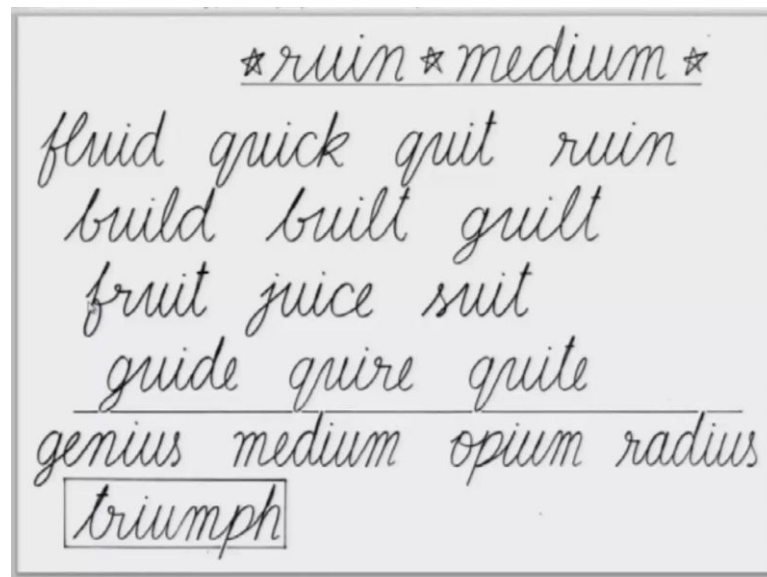 ☆ruin☆medium☆
fluid quick quit ruin
build built guilt
fruit juice suit
guide quire quite
genius medium opium radius
triumph